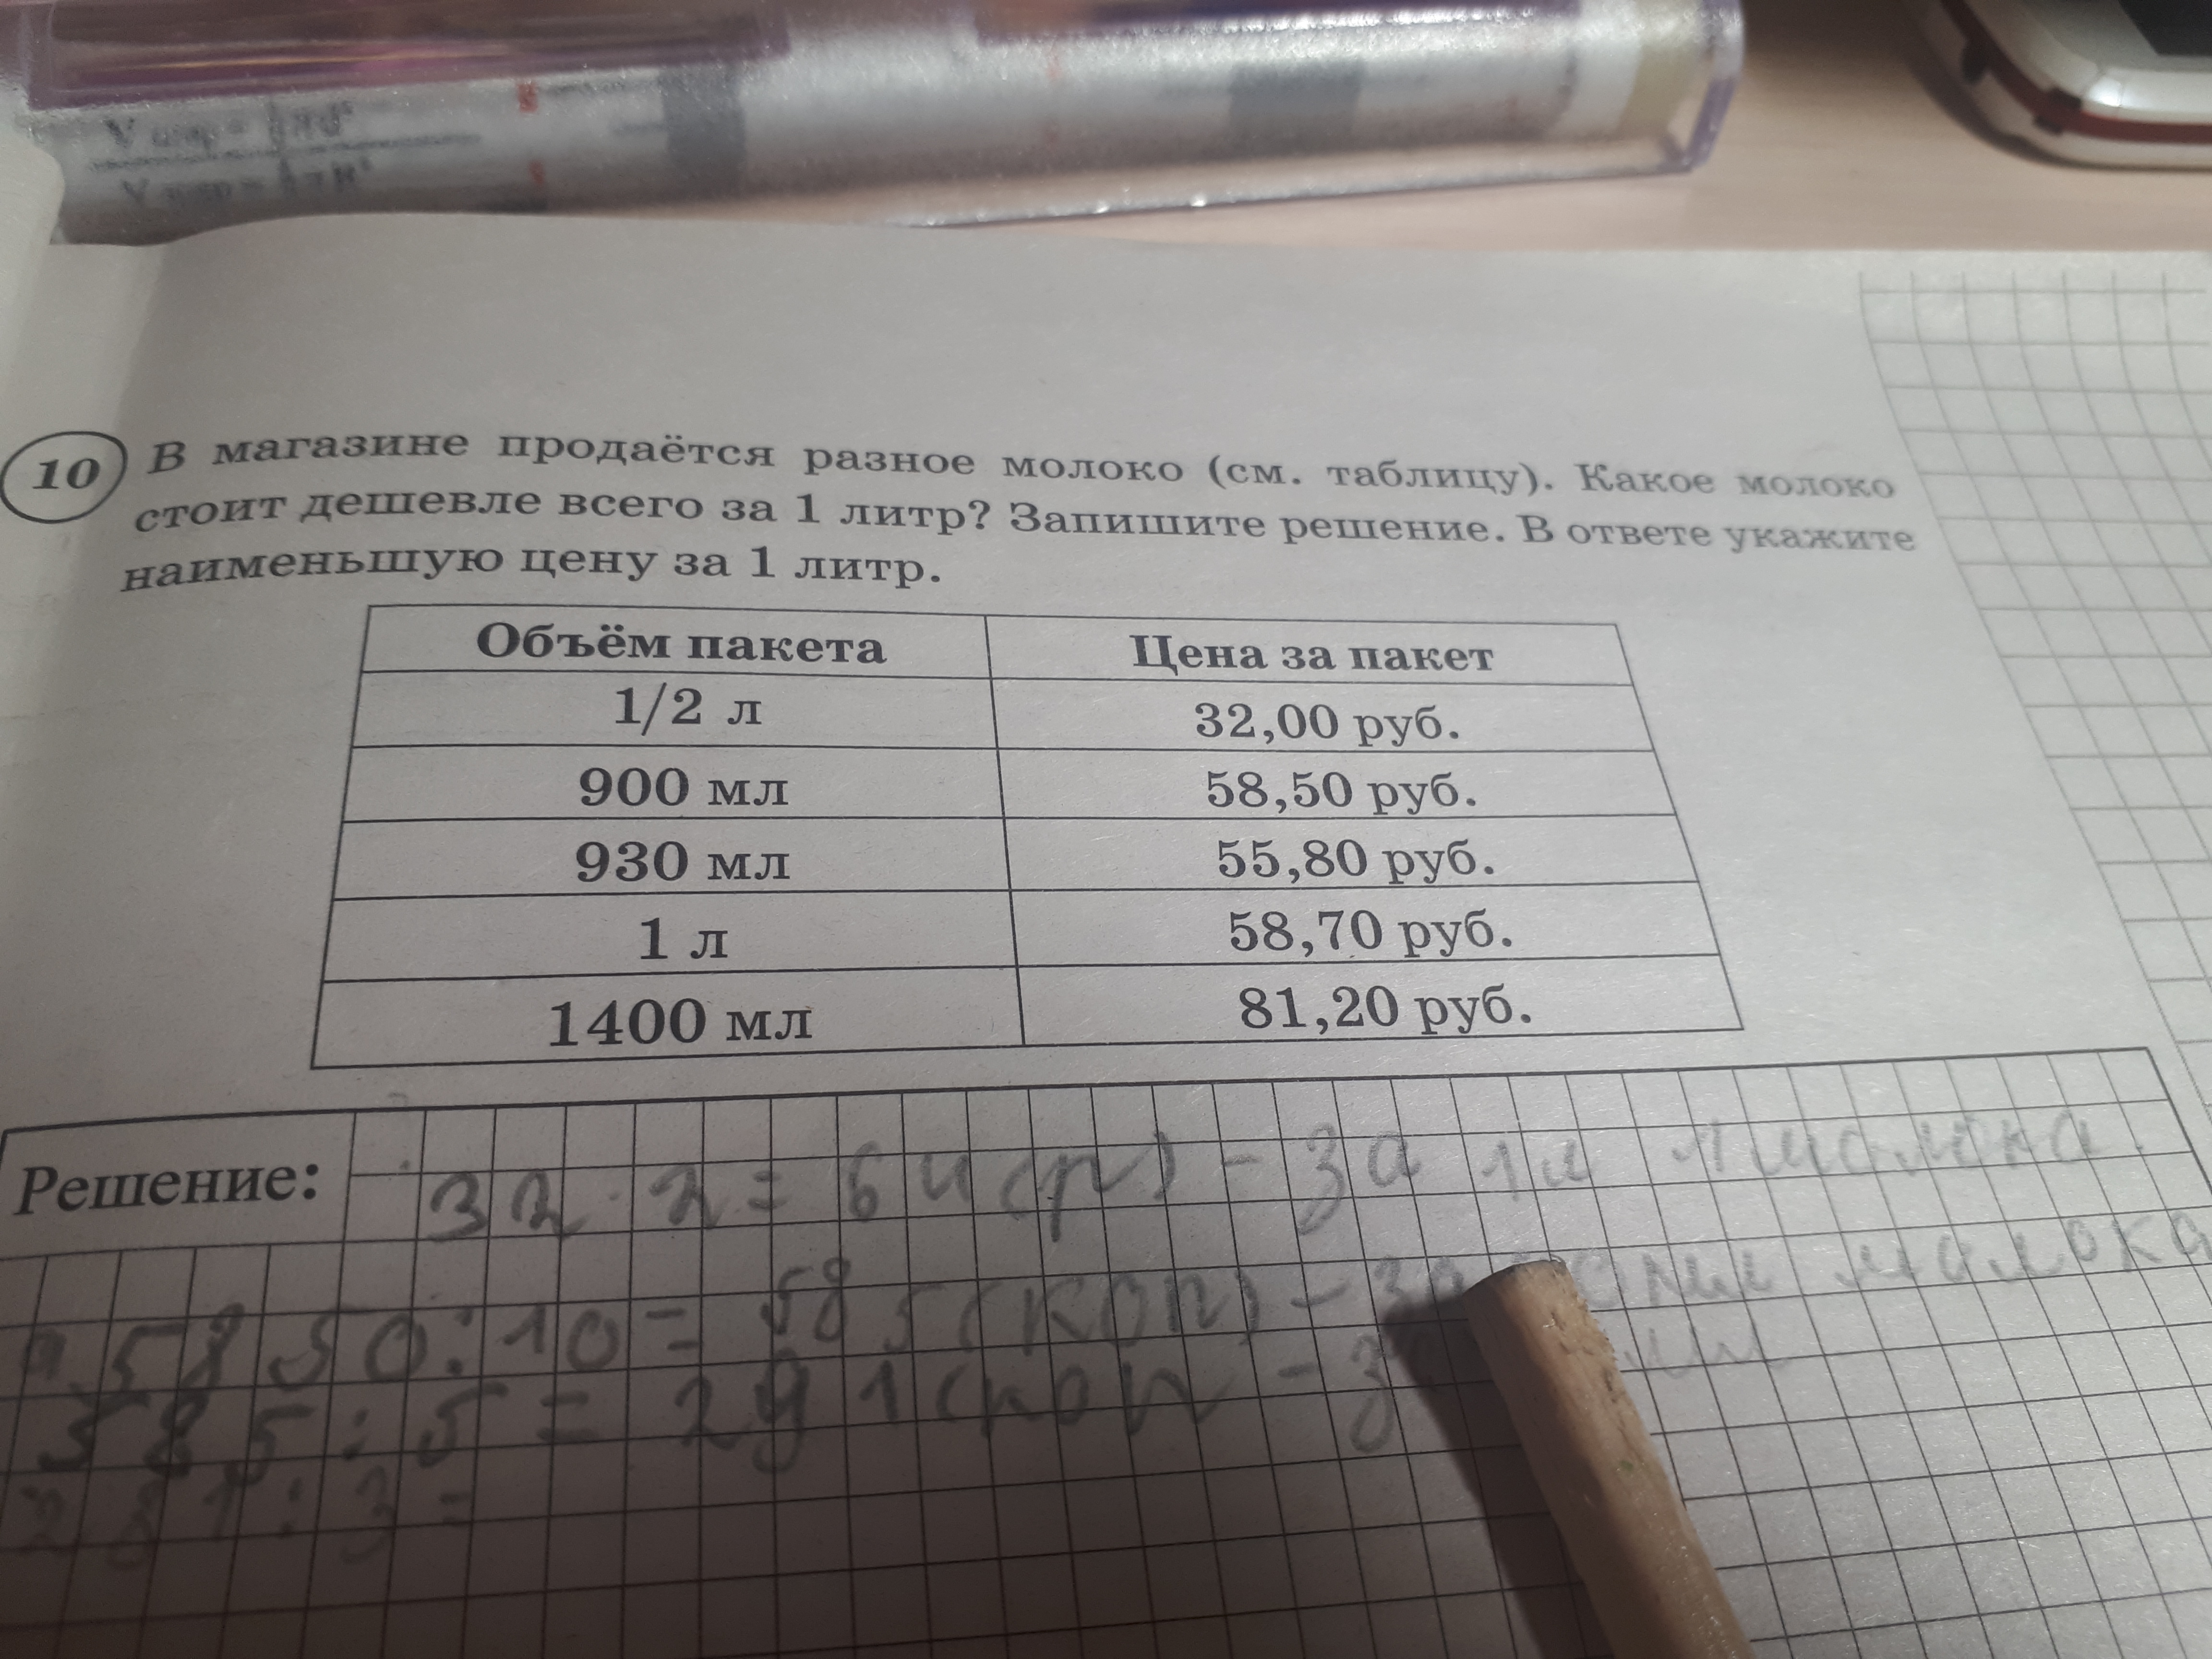 10 В магазине продаётся разное молоко (см. таблицу). Какое молоко
стоит дешевле всего за 1 литр? Запишите решение. В ответе укажите
наименьшую цену за 1 литр.
Объём пакета Цена за пакет
1/2 л 32,00 руб.
900 мл 58,50 руб.
930 мл 55,80 руб.
1 л 58,70 руб.
1400 мл 81,20 руб.
Решение: 32 · 2 = 64 (р) - за 1 л 1 молока.
5850 : 10 = 585 (коп) - за мл малока
585 : 5 = 291 (коп -
291 : 3 =